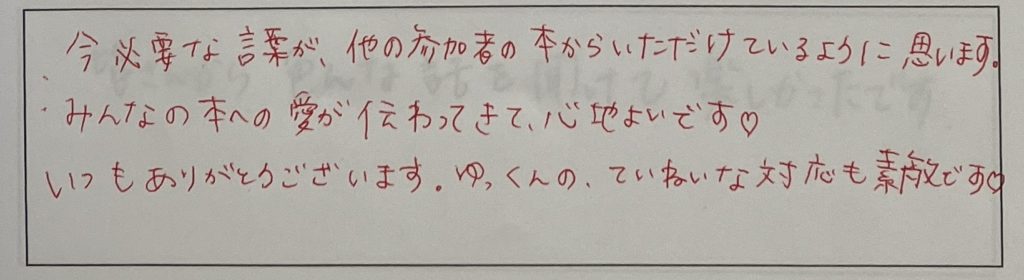 今必要な言葉が、他の参加者の本からいただけているように思います。
みんなの本への愛が伝わってきて、心地よいです♡
いつもありがとうございます。ゆっくんの、ていねいな対応も素敵です♡